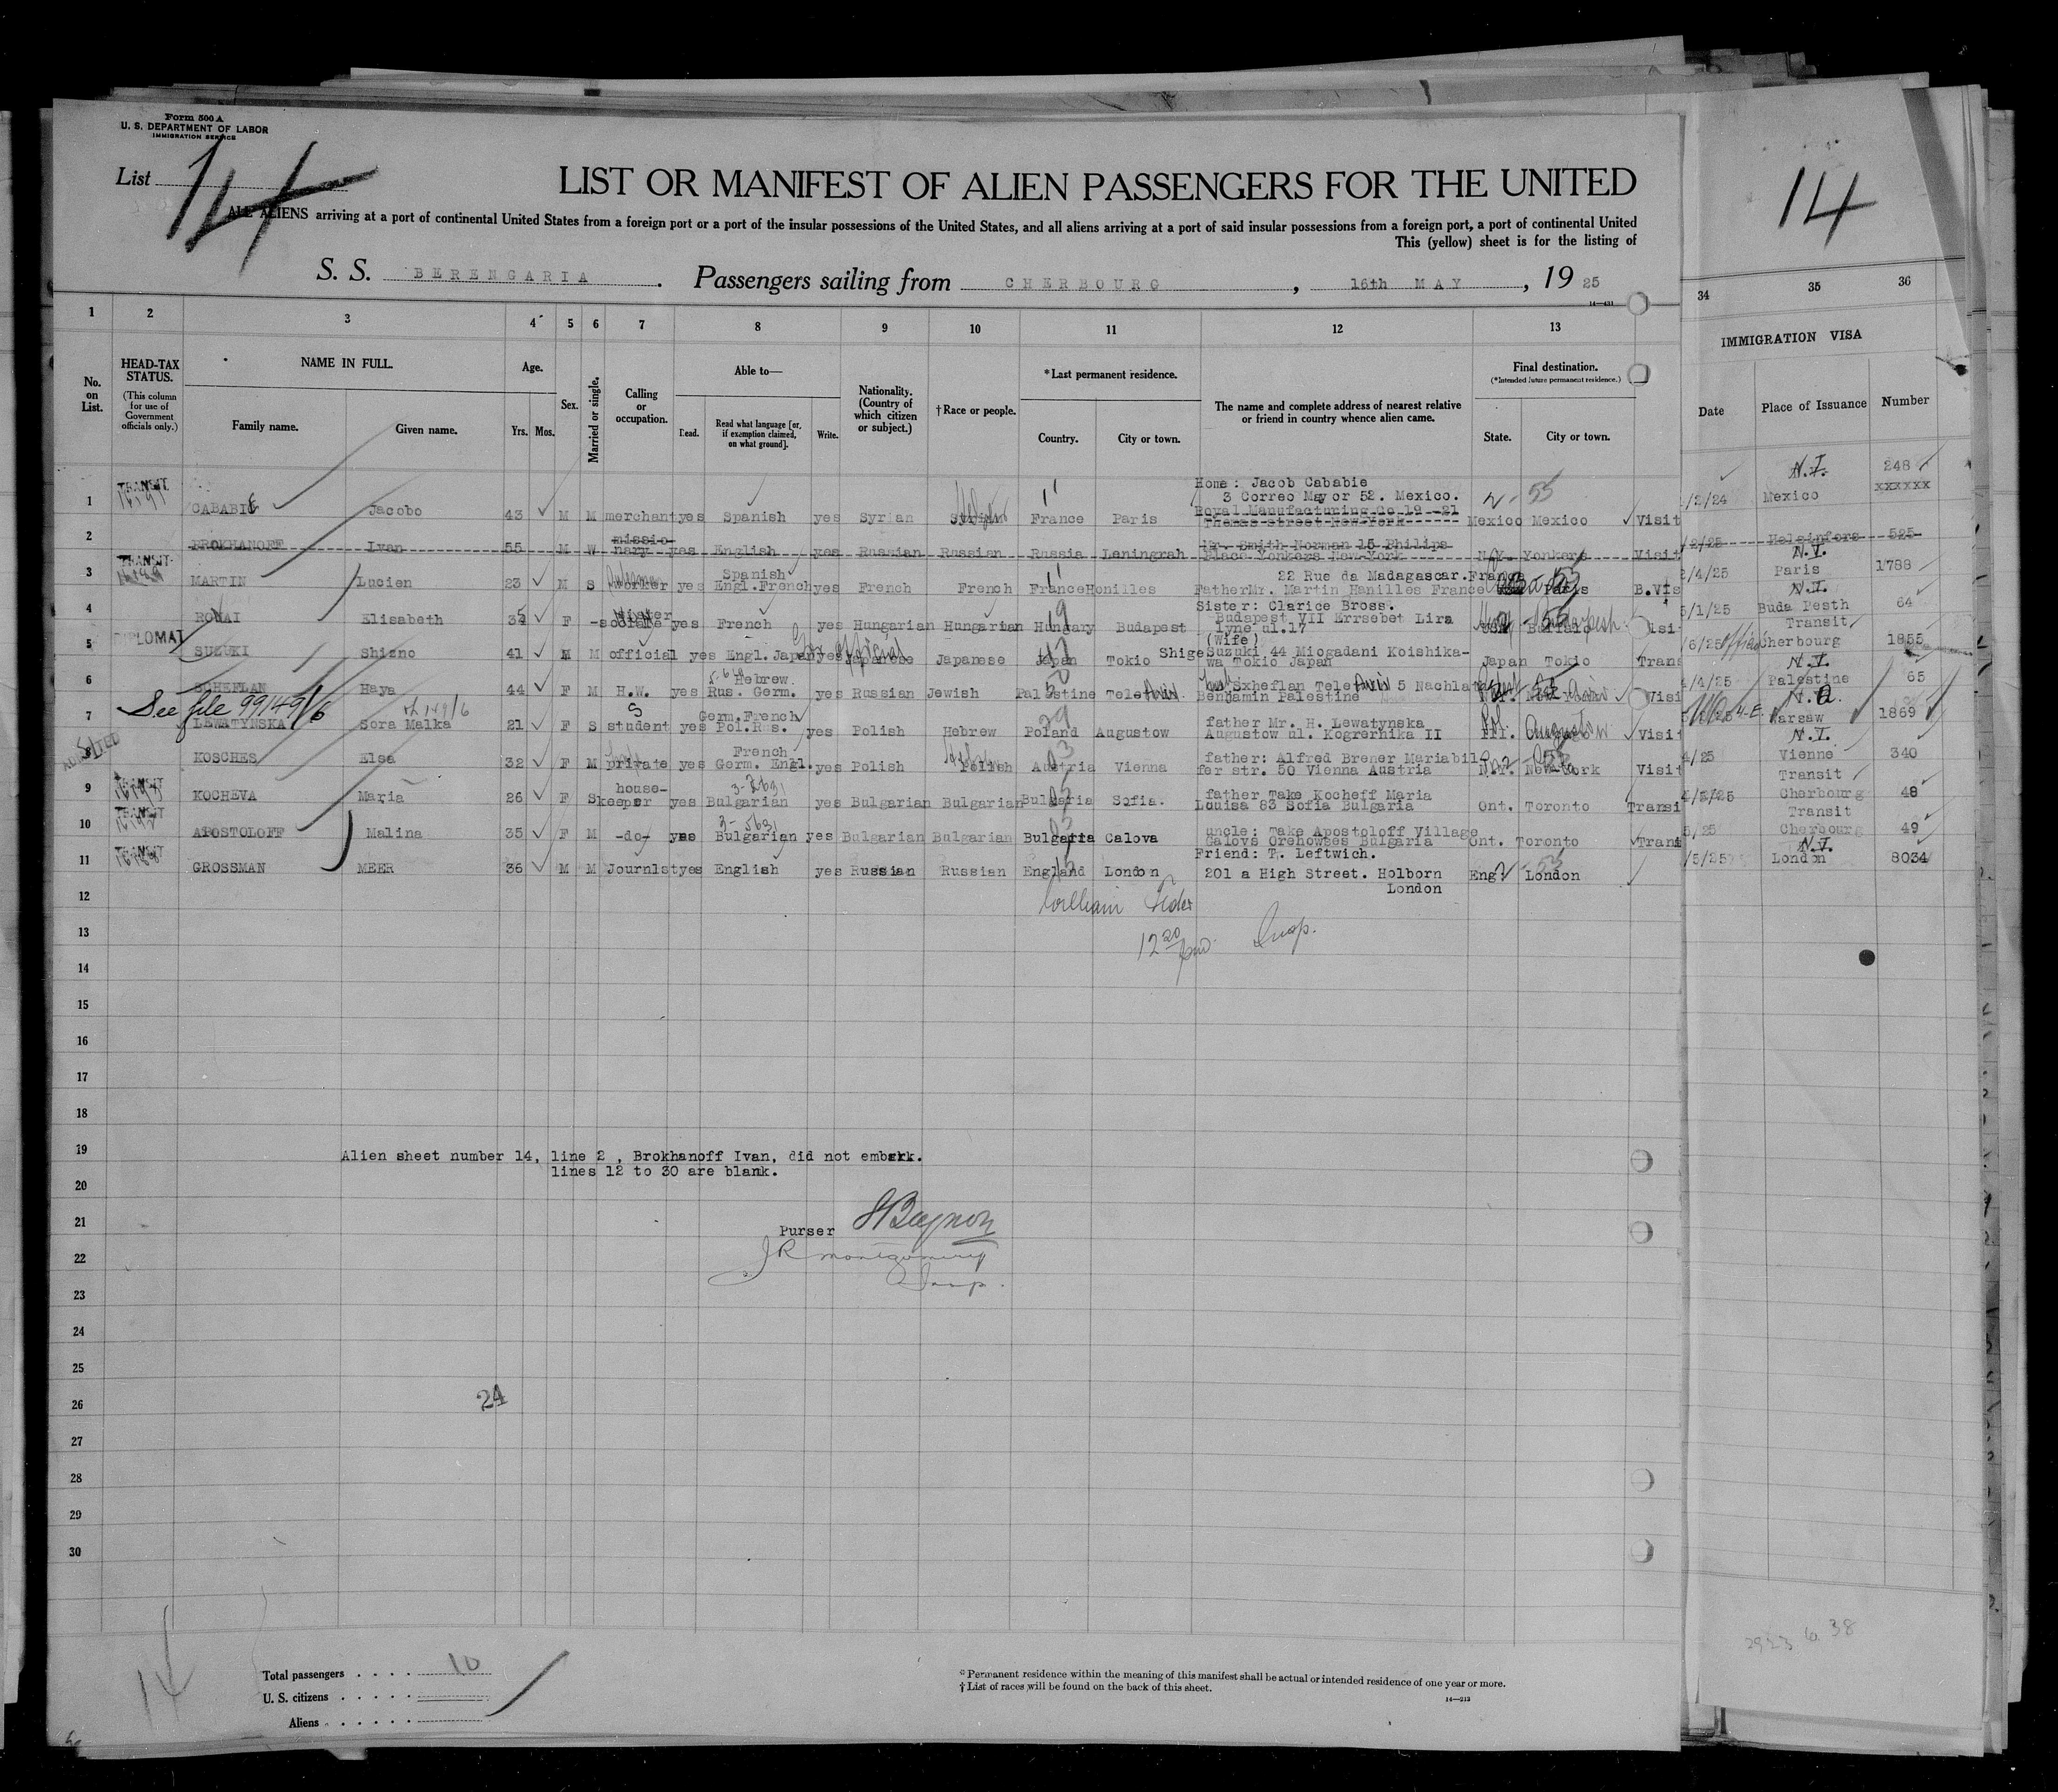 Form 500 A
U. S. DEPARTMENT OF LABOR
IMMIGRATION SERVICE
List 14
LIST OR MANIFEST OF ALIEN PASSENGERS FOR THE UNITED
ALL ALIENS arriving at a port of continental United States from a foreign port or a port of the insular possessions of the United States, and all aliens arriving at a port of said insular possessions from a foreign port, a port of continental United
This (yellow) sheet is for the listing of
S. S. BERENGARIA . Passengers sailing from CHERBOURG , 16th MAY , 19 25
14—431
14
1 2 3 4 5 6 7 8 9 10 11 12 13 34 35 36
No. on List.
HEAD-TAX STATUS.
(This column for use of Government officials only.)
NAME IN FULL.
Family name. Given name.
Age.
Yrs. Mos.
Sex.
Married or single.
Calling or occupation.
Able to—
Read. Read what language [or, if exemption claimed, on what ground]. Write.
Nationality. (Country of which citizen or subject.)
†Race or people.
*Last permanent residence.
Country. City or town.
The name and complete address of nearest relative or friend in country whence alien came.
Final destination.
(*Intended future permanent residence.)
State. City or town.
IMMIGRATION VISA
Date Place of Issuance Number
Home: Jacob Cababie
3 Correo Mayor 52. Mexico.
1 TRANSIT CABABIE Jacobo 43 M M merchant yes Spanish yes Syrian France Paris Royal Manufacturing Co 19 -21 Thomas street New York Mexico Mexico Visit /2/24 N.I. Mexico 248 xxxxxx
2 BROKHANOFF Ivan 55 M W missionary yes English yes Russian Russian Russia Leningrah Mr. Smith Norman 15 Philips Place Yonkers New York N.Y. Yonkers Visit /2/25 Helsinfors 525
3 TRANSIT MARTIN Lucien 23 M S worker yes Spanish Engl.French yes French French France Honilles 22 Rue da Madagascar.France Father Mr. Martin Hanilles France Paris B.Vis /4/25 N.V. Paris 1788
4 RONAI Elisabeth F yes French yes Hungarian Hungarian Hungary Budapest Sister: Clarice Bross. Budapest VII Errsebet Lira lyne ul.17 Buffalo isi 5/1/25 N.I. Buda Pesth 64
5 DIPLOMAT SUZUKI Shizno 41 M M official yes Engl.Japan yes Japanese Japanese Japan Tokio (Wife) Shige Suzuki 44 Miogadani Koishikawa Tokio Japan Japan Tokio Trans /6/25 Transit Cherbourg 1855
6 SCHEFLAN Haya 44 F M H.W. yes Hebrew. Rus. Germ. yes Russian Jewish Palestine Tele Aviv Sxheflan Tele Aviv 5 Nachlat Benjamin Palestine Visi /4/25 N.I. Palestine 65
See file 99149/6
7 LEWATYNSKA Sora Malka 21 F S student yes Germ.French Pol.Rus. yes Polish Hebrew Poland Augustow father Mr. H. Lewatynska Augustow ul. Kogrernika II Augustow Visit Warsaw 1869
8 KOSCHES Elsa 32 F M private yes French Germ. Engl. yes Polish Polish Austria Vienna father: Alfred Brener Mariabilfer str. 50 Vienna Austria N.Y. New York Visit 4/25 N.I. Vienne 340
9 TRANSIT KOCHEVA Maria 26 F S housekeeper yes Bulgarian yes Bulgarian Bulgarian Bulgaria Sofia. father Take Kocheff Maria Louisa 83 Sofia Bulgaria Ont. Toronto Transi 4/5/25 Transit Cherbourg 48
10 TRANSIT APOSTOLOFF Malina 35 F M -do- yes Bulgarian yes Bulgarian Bulgarian Bulgaria Calova uncle: Take Apostoloff Village Calovs Orehowses Bulgaria Ont. Toronto Trans 5/25 Transit Cherbourg 49
11 TRANSIT GROSSMAN MEER 36 M M Journlst yes English yes Russian Russian England London Friend: T. Leftwich. 201 a High Street. Holborn London Eng. London /5/25 N.I. London 8034
12
William
13
12 20 pm. Insp.
14
15
16
17
18
19
Alien sheet number 14, line 2 , Brokhanoff Ivan, did not embark.
lines 12 to 30 are blank.
20
21
Purser
22
JR Montgomery
Insp.
23
24
25
26
24
27
28
29
30
14
Total passengers . . . . 10
U. S. citizens . . . . .
Aliens . . . . . .
*Permanent residence within the meaning of this manifest shall be actual or intended residence of one year or more.
†List of races will be found on the back of this sheet.
14—212